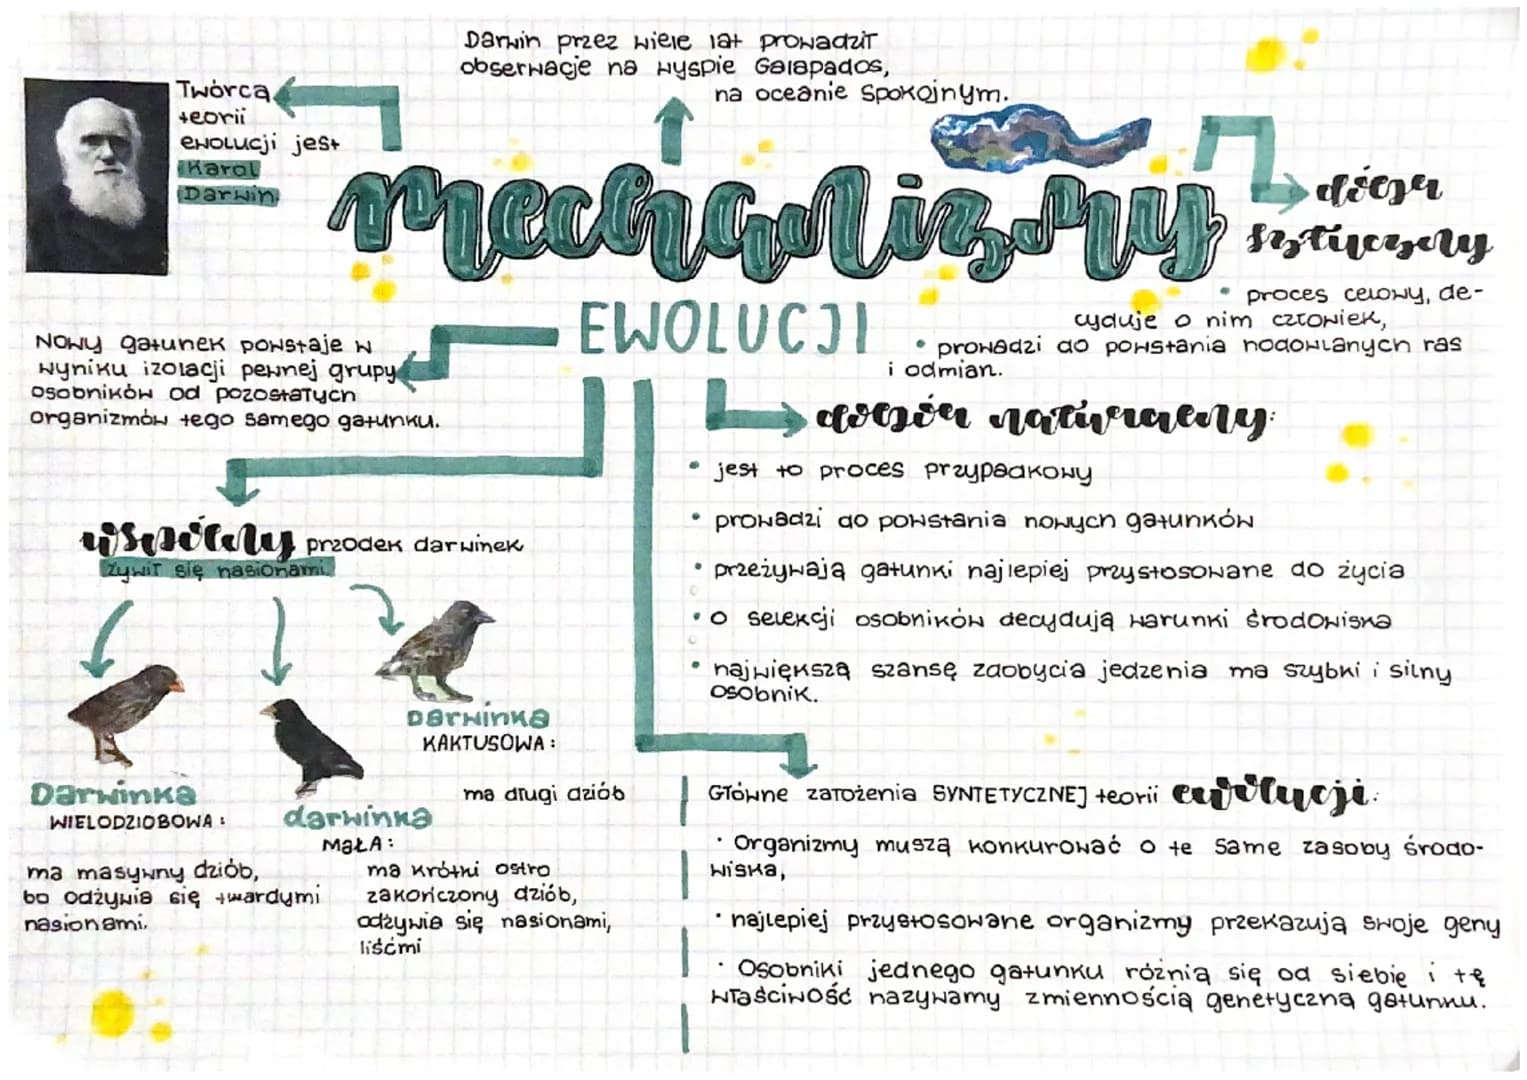 Darwin przez wiele lat prowadził
obserwacje na wyspie Galapados,
na oceanie Spokojnym.
Twórcą
teorii
ewolucji jest
Karol
Darwin.
mechanizmy
EWOLUCJI
dobór
sztuczny
• proces celowy, de-
cyduje o nim człowiek,
• prowadzi do powstania hodowlanych ras
i odmian.
Nowy gatunek powstaje w
wyniku izolacji pewnej grupy
osobników od pozostałych
organizmów tego samego gatunku.
dobór naturalny:
• jest to proces przypadkowy
• prowadzi do powstania nowych gatunków
• przeżywają gatunki najlepiej przystosowane do życia
• o selekcji osobników decydują warunki środowiska
• największą szansę zdobycia jedzenia ma szybki i silny
osobnik.
wspólny przodek darwinek
żywił się nasionami.
Darwinka
WIELODZIOBOWA:
ma masywny dziób,
bo odżywia się twardymi
nasionami.
darwinka
MAŁA:
ma krótki ostro
zakończony dziób,
odżywia się nasionami,
liśćmi
Darwinka
KAKTUSOWA:
ma długi dziób
Główne założenia SYNTETYCZNEJ teorii ewolucji:
• Organizmy muszą konkurować o te same zasoby środo-
wiska,
• najlepiej przystosowane organizmy przekazują swoje geny
• Osobniki jednego gatunku różnią się od siebie i tę
właściwość nazywamy zmiennością genetyczną gatunku.